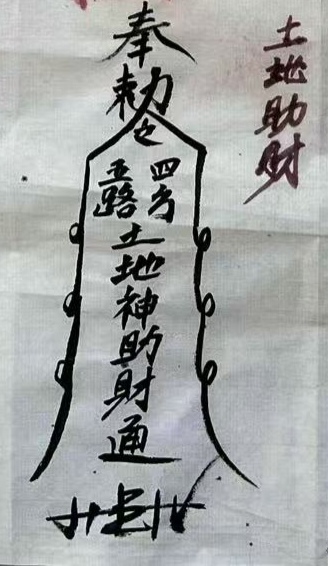 土地助財
奉勅令
四方
五路
土地神助財通